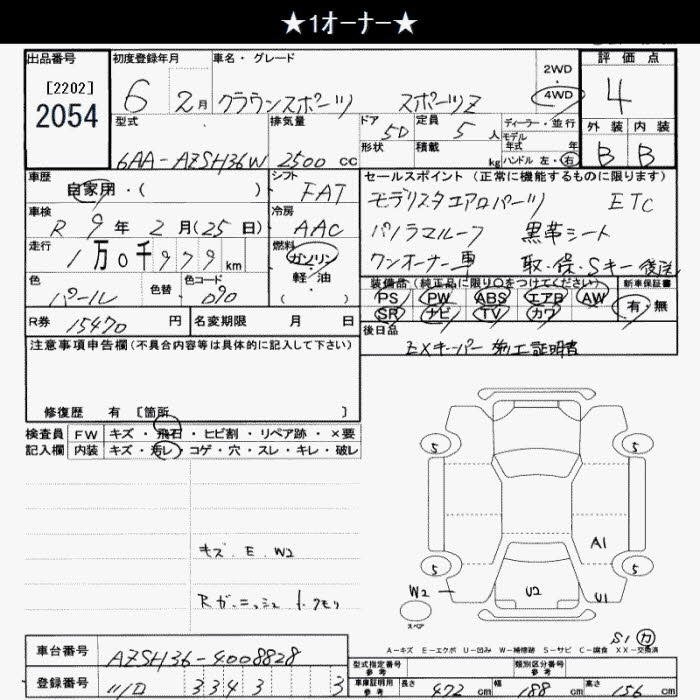 ★1オーナー★
出品番号 初度登録年月 車名・グレード 2WD 評価点
[2202] 6 2月 クラウンスポーツ スポーツZ ・4WD 4
2054 型式 排気量 ドア 5D 定員 5人 ディーラー・並行 外装 内装
モデル年式 年
6AA-AZSH36W 2500cc 形状 積載 kg ハンドル 左・右 B B
車歴 自家用・( ) シフト FAT セールスポイント(正常に機能するものに限ります)
車検 R 9年 2月(25日) 冷房 AAC モデリスタエアロパーツ ETC
パノラマルーフ 黒革シート
走行 1万0千979km 燃料 ガソリン・軽油 ( ) ワンオーナー車 取・保・Sキー 後送
色 パール 色替 色コード 090 装備品(純正品に限り○をつけてください) 新車保証書
PS PW ABS エアB AW 有・無
SR ナビ TV カワ
R券 15470円 名変期限 月 日 後日品
注意事項申告欄(不具合内容等は具体的に記入して下さい) EXキーパー 施工証明書
修復歴 有 [箇所 ]
検査員 FW キズ・飛石・ヒビ割・リペア跡・×要
記入欄 内装 キズ・汚レ・コゲ・穴・スレ・キレ・破レ
5 5
キズ.E.W2 A1
5 5
Rガーニッシュ W2 U2 U1
スペア
S1 カ
A-キズ E-エクボ U-凹み W-補修跡 S-サビ C-腐食 XX-交換済
車台番号 AZSH36-4008828
型式指定番号 参考 類別区分番号 参考
登録番号 3343 3 車庫証明用 参考 長さ 472cm 幅 188cm 高さ 156cm